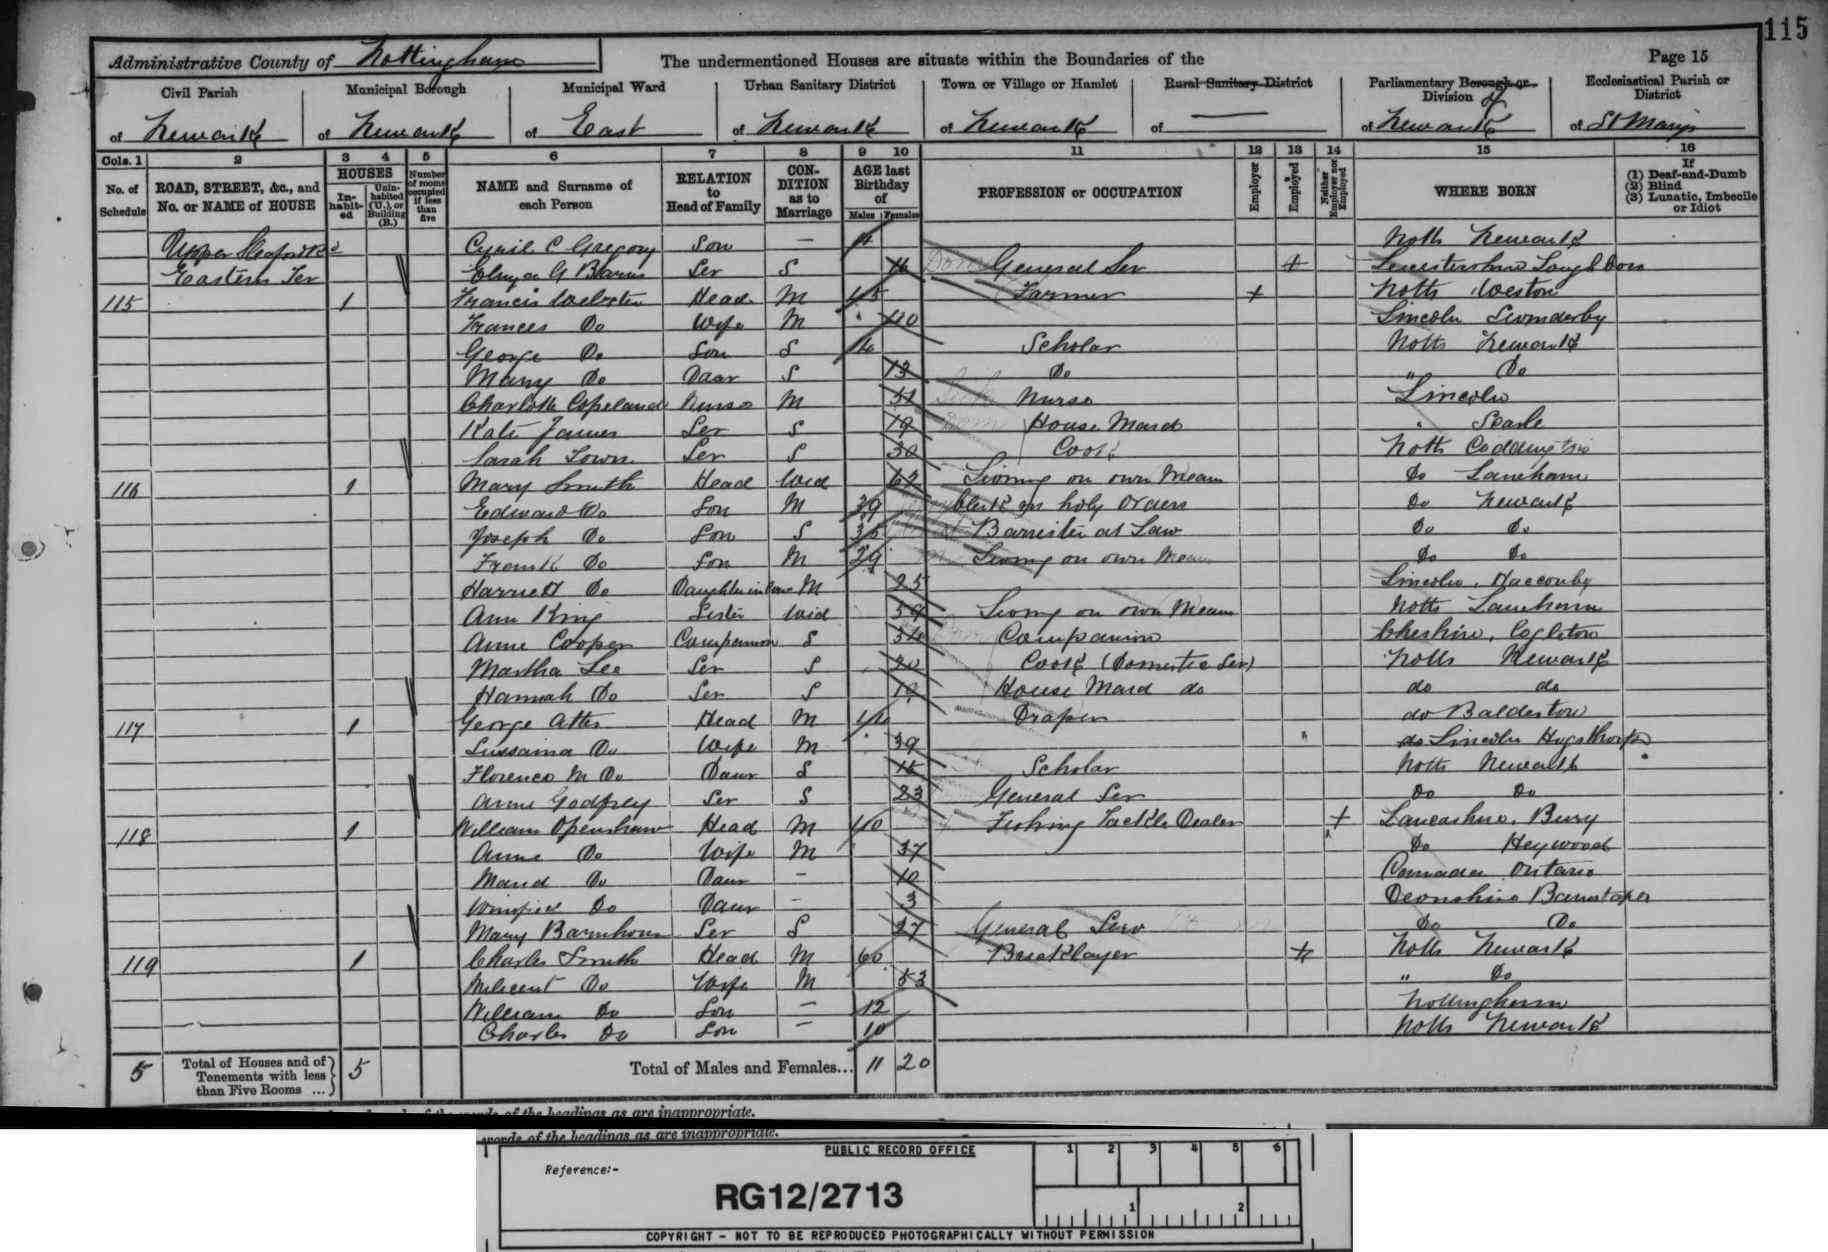 115
Administrative County of Nottingham The undermentioned Houses are situate within the Boundaries of the Page 15
Civil Parish Municipal Borough Municipal Ward Urban Sanitary District Town or Village or Hamlet Rural Sanitary District Parliamentary Borough or Division of Ecclesiastical Parish or District
of Newark of Newark of East of Newark of Newark of — of Newark of St Marys
Cols. 1 2 3 4 5 6 7 8 9 10 11 12 13 14 15 16
No. of Schedule ROAD, STREET, &c., and No. or NAME of HOUSE HOUSES Inhabited Uninhabited (U.), or Building (B.) Number of rooms occupied if less than five NAME and Surname of each Person RELATION to Head of Family CONDITION as to Marriage AGE last Birthday of Males Females PROFESSION or OCCUPATION Employer Employed Neither Employer nor Employed WHERE BORN If (1) Deaf-and-Dumb (2) Blind (3) Lunatic, Imbecile or Idiot
Upper Sleaford Rd Cyril C Gregory Son — Notts Newark
Eastern Ter G Ser S 16 General Ser + Leicestershire
115 1 Francis Webster Head M 45 Farmer + Notts Weston
Frances Do Wife M 40 Lincoln
George Do Son S 16 Scholar Notts Newark
Mary Do Daur S 13 Do " Do
Charlotte Copeland Nurse M 51 Nurse Lincoln
Kate James Ser S 19 House Maid Scarle
Sarah Town Ser S 30 Cook Notts Coddington
116 1 Mary Smith Head Wid 62 Living on own Mean Do Laneham
Edward Do Son M 39 Clerk in holy Orders Do Newark
Joseph Do Son S Barrister at Law Do Do
Frank Do Son M 29 Living on own Mean Do Do
Harriett Do Daughter in law M 25 Lincoln, Hacconby
Ann King Sister Wid 59 Living on own Mean Notts Laneham
Anne Cooper Companion S Companion Cheshire, Cogleton
Martha Lee Ser S 20 Cook (Domestic Ser) Notts Newark
Hannah Do Ser S 19 House Maid do do do
117 1 George Atter Head M Draper do Balderton
Do Wife M 39 do Lincoln Hogsthorpe
Florence M Do Daur S 15 Scholar Notts Newark
Anne Godfrey Ser S 23 General Ser Do Do
118 1 William Openshaw Head M 40 Fishing Tackle Dealer + Lancashire, Bury
Anne Do Wife M 37 Do Heywood
Maud Do Daur - 10 Canada Ontario
Winifred Do Daur - 3 Devonshire Barnstaper
Mary Ser S 27 General Serv Do Do
119 1 Charles Smith Head M 60 Bricklayer + Notts Newark
Milicent Do Wife M 53 " Do
William Do Son - 12 Nottingham
Charles Do Son - 10 Notts Newark
5 Total of Houses and of Tenements with less than Five Rooms ... 5 Total of Males and Females... 11 20
words of the headings as are inappropriate.
words of the headings as are inappropriate.
PUBLIC RECORD OFFICE 1 2 3 4 5 6
Reference:-
RG12/2713
1 2
COPYRIGHT - NOT TO BE REPRODUCED PHOTOGRAPHICALLY WITHOUT PERMISSION